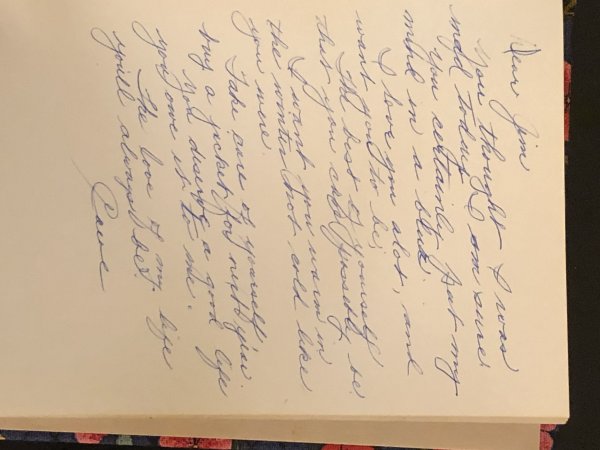 Dear Jim
You thought I was
mad today I am sure.
You certainly put my
mind in a
I love you alot, and
want you to be,
The best of yourself
that you can possibly be.
I want you warm in
the winter not cold like
you were.
Take care of yourself
buy a jacket for next year
You deserve a good life
you owe it to me.
The love of my life
you'll always be.